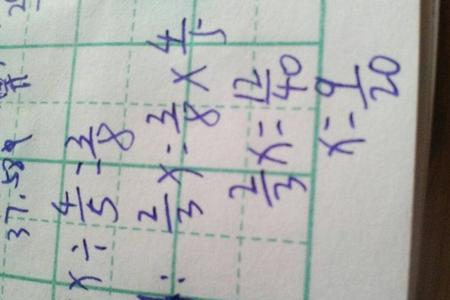 x÷4/5=3/8
2/3x=3/8×4/5
2/3x=12/40
x=9/20